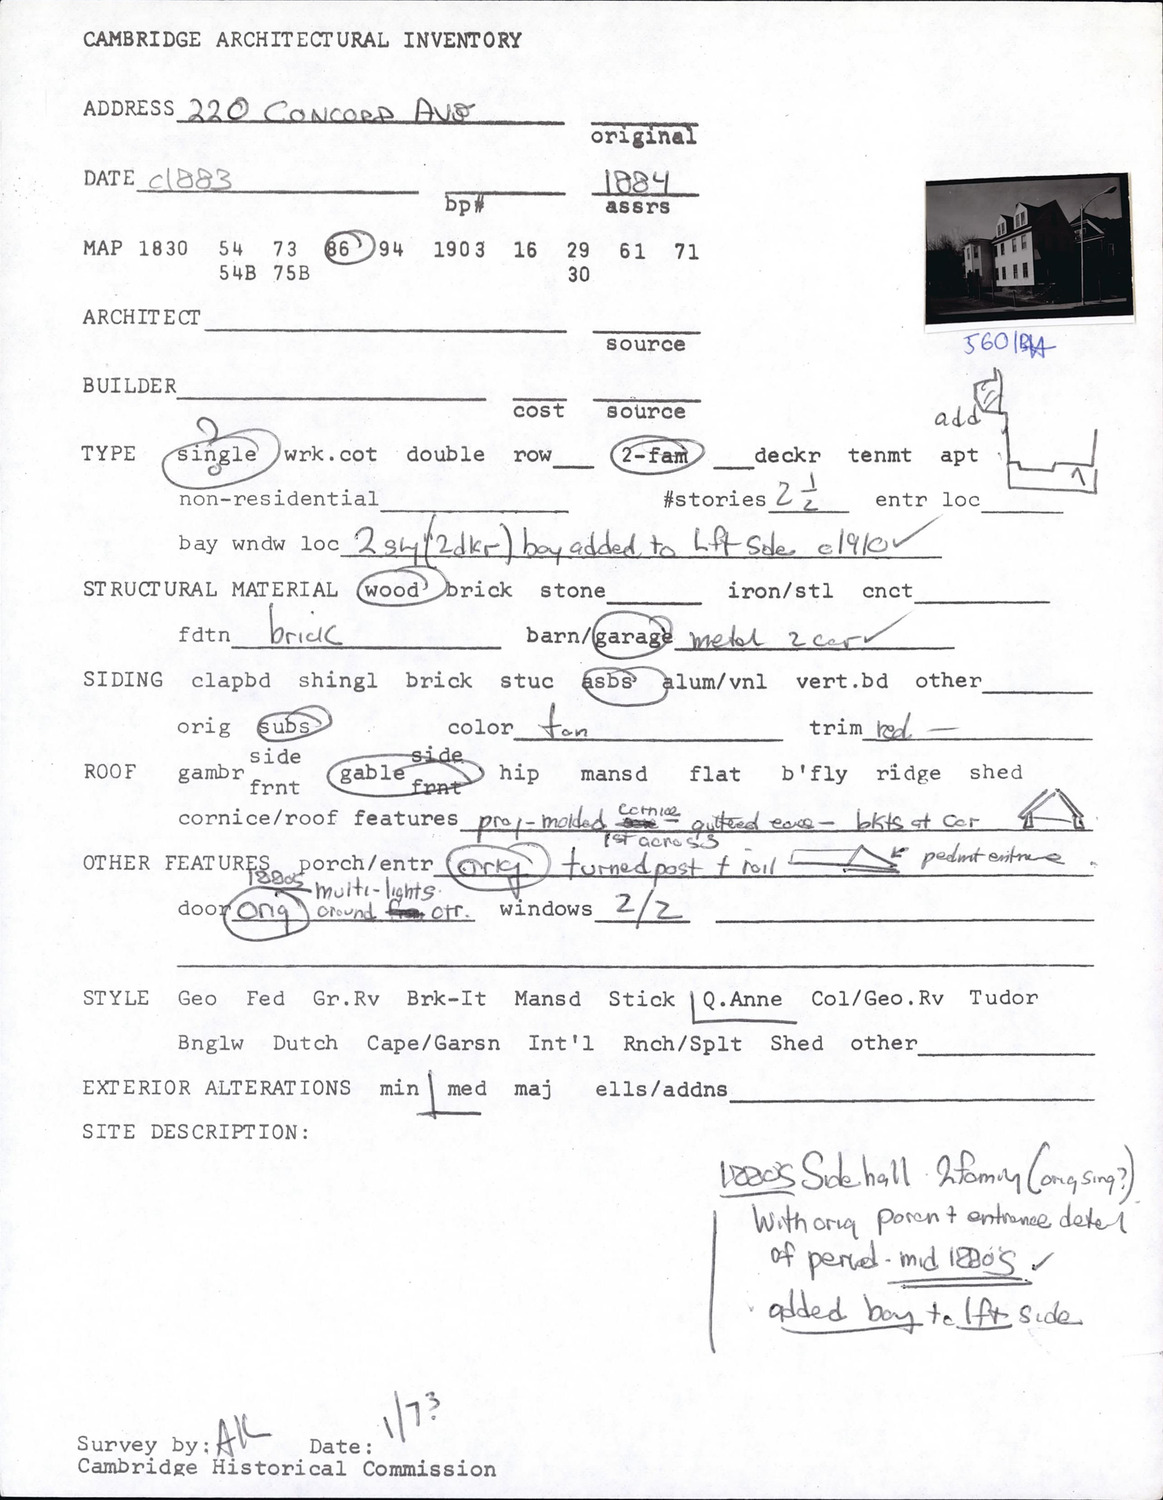 CAMBRIDGE ARCHITECTURAL INVENTORY
ADDRESS 220 CONCORD AVE
original
DATE c1883 1884
bp# assrs
MAP 1830 54 73 86 94 1903 16 29 61 71
54B 75B 30
ARCHITECT
source
BUILDER
cost source
5601
add
?
TYPE single wrk.cot double row 2-fam deckr tenmt apt
non-residential #stories 2 1/2 entr loc
bay wndw loc 2 sty (2dkr) bay added to Lft Side c1910 ✓
STRUCTURAL MATERIAL wood brick stone iron/stl cnct
fdtn brick barn/garage metal 2 car ✓
SIDING clapbd shingl brick stuc asbs alum/vnl vert.bd other
orig subs color tan trim red —
side side
ROOF gambr gable hip mansd flat b'fly ridge shed
frnt frnt
cornice/roof features proj-molded cornice – guttered eave – bkts at cor
1st across
OTHER FEATURES porch/entr orig turned post + rail pedmt entrnce
1880s multi-lights
door orig around ctr. windows 2/2
STYLE Geo Fed Gr.Rv Brk-It Mansd Stick Q.Anne Col/Geo.Rv Tudor
Bnglw Dutch Cape/Garsn Int'l Rnch/Splt Shed other
EXTERIOR ALTERATIONS min med maj ells/addns
SITE DESCRIPTION:
1880's Side hall 2family (orig sing?)
With orig porch + entrance detail
of period - mid 1880's ✓
added bay to lft side
Survey by: AK Date: 1/73
Cambridge Historical Commission